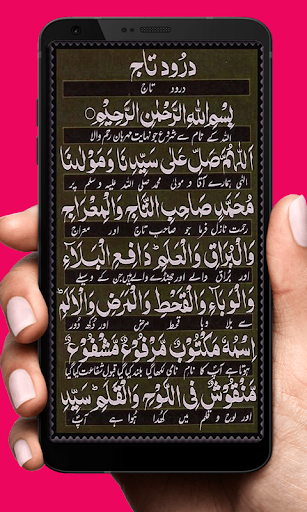 درُود تاج
درود تاج
بِسْمِ اللهِ الرَّحْمٰنِ الرَّحِيْمِ
اللہ کے نام سے شروع جو نہایت مہربان رحم والا
اَللّٰهُمَّ صَلِّ عَلٰى سَيِّدِنَا وَمَوْلٰىنَا
الٰہی ہمارے آقا و مولیٰ محمد صلی اللہ علیہ وسلم پر
مُحَمَّدٍ صَاحِبِ التَّاجِ وَالْمِعْرَاجِ
رحمت نازل فرما جو صاحب تاج اور معراج
وَالْبُرَاقِ وَالْعَلَمِ دَافِعِ الْبَلَاءِ
اور براق والے اور جھنڈے والے ہیں جن کے وسیلے
وَالْوَبَاءِ وَالْقَحْطِ وَالْمَرَضِ وَالْاَلَمِ
سے بلا وبا قحط مرض اور دکھ دُور
اِسْمُهٗ مَكْتُوْبٌ مَّرْفُوْعٌ مَّشْفُوْعٌ
ہوتا ہے آپ کا نام نامی لکھا گیا بلند کیا گیا قبول شفاعت کیا گیا
مَّنْقُوْشٌ فِى اللَّوْحِ وَالْقَلَمِ سَيِّدِ
اور لوح و قلم میں کھدا ہوا ہے آپ